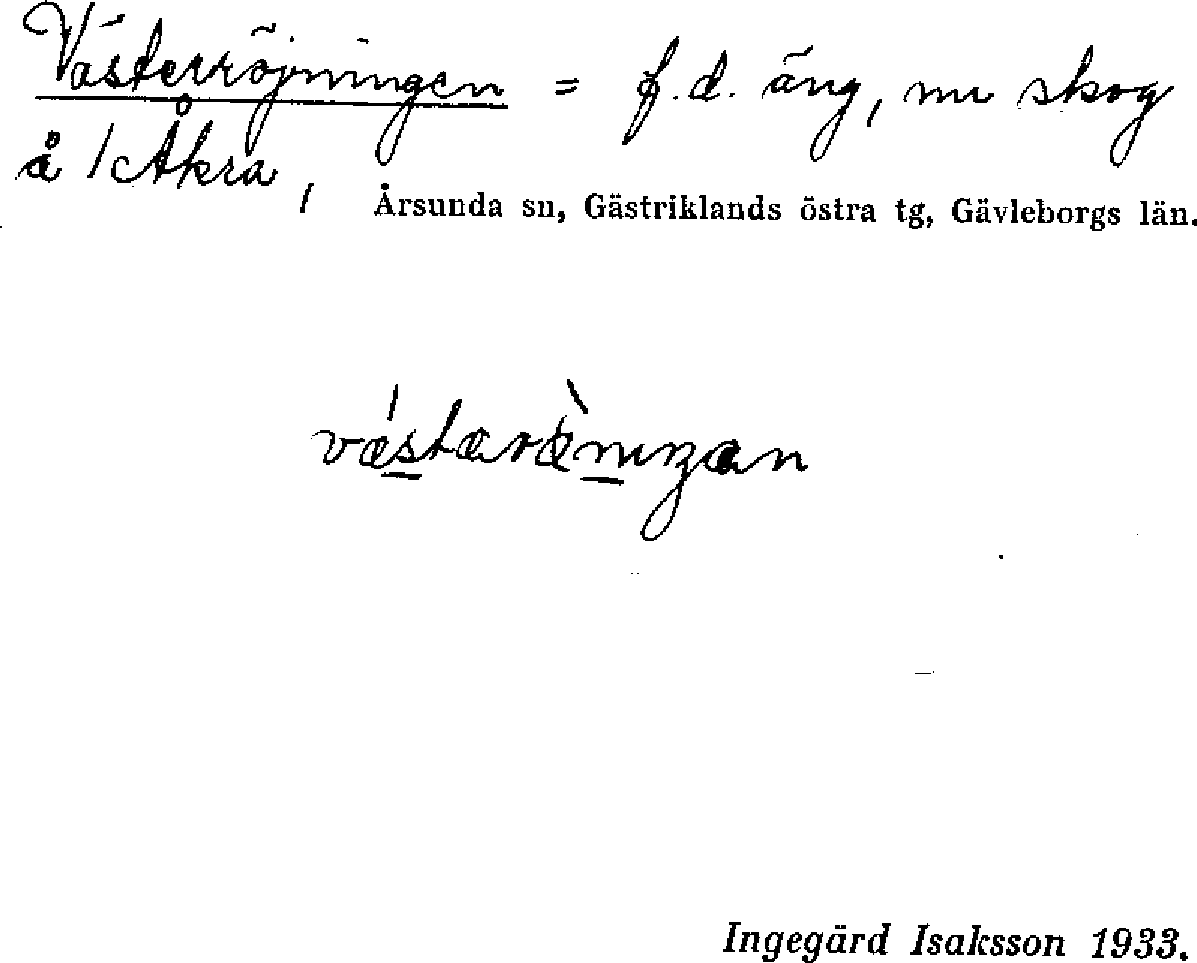 Västerröjningen = f.d. äng, nu skog
å /Åkra, Årsunda sn, Gästriklands östra tg, Gävleborgs län.
Ingegärd Isaksson 1933.